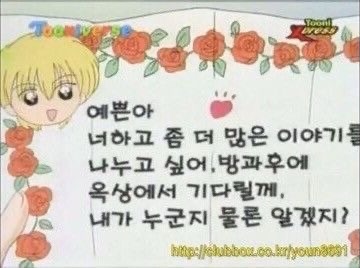 Tooniverse
Tooni
Xpress
예쁜아
너하고 좀 더 많은 이야기를
나누고 싶어, 방과후에
옥상에서 기다릴께,
내가 누군지 물론 알겠지?
http://clubbox.co.kr/youn8691